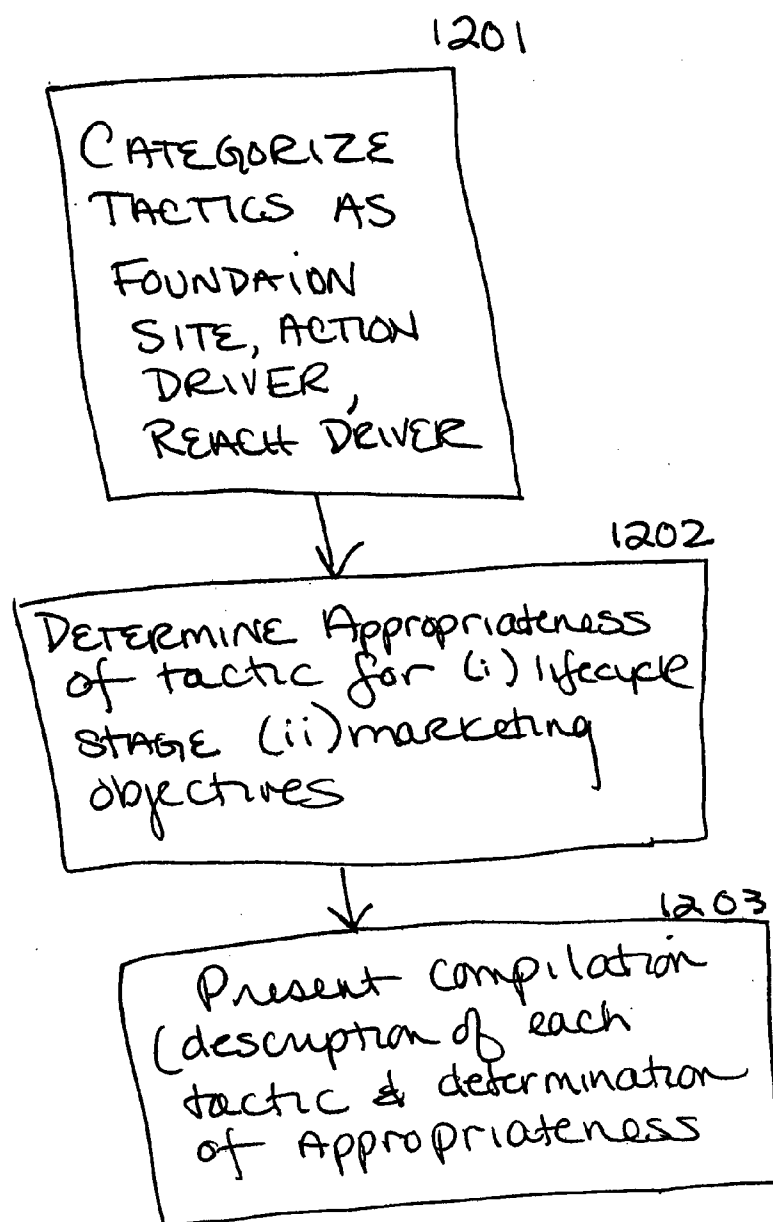 1201
CATEGORIZE
TACTICS AS
FOUNDAION
SITE, ACTION
DRIVER,
REACH DRIVER
1202
DETERMINE Appropriateness
of tactic for (i) lifecycle
STAGE (ii) marketing
objectives
1203
Present compilation
(description of each
tactic & determination
of Appropriateness